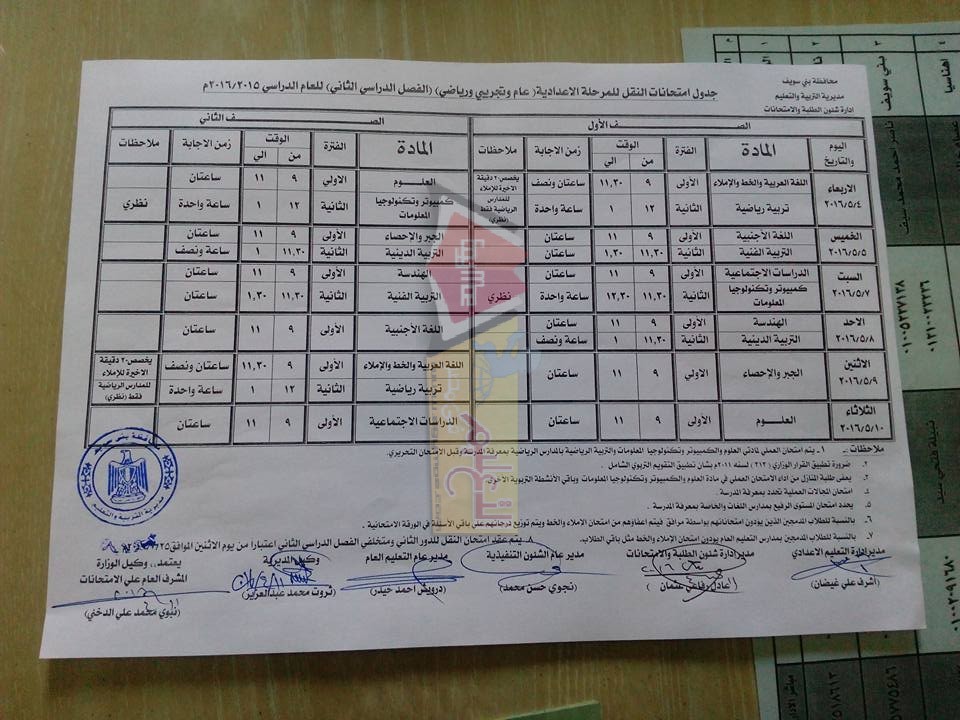 محافظة بني سويف
مديرية التربية والتعليم
ادارة شئون الطلبة والامتحانات
جدول امتحانات النقل للمرحلة الاعدادية( عام وتجريبي ورياضي) (الفصل الدراسي الثاني) للعام الدراسي ٢٠١٦/٢٠١٥م
الصف الأول
الصف الثاني
اليوم والتاريخ المادة الفترة الوقت من الي زمن الاجابة ملاحظات المادة الفترة الوقت من الي زمن الاجابة ملاحظات
الاربعاء ٢٠١٦/٥/٤
اللغة العربية والخط والإملاء الأولى ٩ ١١,٣٠ ساعتان ونصف يخصص ٢٠ دقيقة الاخيرة للإملاء العلوم الاولي ٩ ١١ ساعتان
تربية رياضية الثانية ١٢ ١ ساعة واحدة للمدارس الرياضية فقط (نظري) كمبيوتر وتكنولوجيا المعلومات الثانية ١٢ ١ ساعة واحدة نظري
الخميس ٢٠١٦/٥/٥
اللغة الأجنبية الأولى ٩ ١١ ساعتان الجبر والإحصاء الأولى ٩ ١١ ساعتان
التربية الفنية الثانية ١١,٣٠ ١,٣٠ ساعتان التربية الدينية الثانية ١١,٣٠ ١ ساعة ونصف
السبت ٢٠١٦/٥/٧
الدراسات الاجتماعية الأولى ٩ ١١ ساعتان الهندسة الأولى ٩ ١١ ساعتان
كمبيوتر وتكنولوجيا المعلومات الثانية ١١,٣٠ ١٢,٣٠ ساعة واحدة نظري التربية الفنية الثانية ١١,٣٠ ١,٣٠ ساعتان
الاحد ٢٠١٦/٥/٨
الهندسة الأولى ٩ ١١ ساعتان اللغة الأجنبية الأولى ٩ ١١ ساعتان
التربية الدينية الثانية ١١,٣٠ ١ ساعة ونصف
الاثنين ٢٠١٦/٥/٩
الجبر والإحصاء الأولي ٩ ١١ ساعتان اللغة العربية والخط والإملاء الأولى ٩ ١١,٣٠ ساعتان ونصف يخصص ٢٠ دقيقة الاخيرة للإملاء
تربية رياضية الثانية ١٢ ١ ساعة واحدة للمدارس الرياضية فقط (نظري)
الثلاثاء ٢٠١٦/٥/١٠
العلوم الأولى ٩ ١١ ساعتان الدراسات الاجتماعية الأولى ٩ ١١ ساعتان
ملاحظات ١. يتم امتحان العملي لمادتي العلوم والكمبيوتر وتكنولوجيا المعلومات والتربية الرياضية بالمدارس الرياضية بمعرفة المدرسة وقبل الامتحان التحريري.
٢. ضرورة تطبيق القرار الوزاري (٣١٣) لسنة ٢٠١١م بشأن تطبيق التقويم التربوي الشامل .
٣. يعفي طلبة المنازل من اداء الامتحان العملي في مادة العلوم والكمبيوتر وتكنولوجيا المعلومات وباقي الأنشطة التربوية الأخرى.
٤. امتحان المجالات العملية تحدد بمعرفة المدرسة .
٥. يحدد امتحان المستوى الرفيع بمدارس اللغات والخاصة بمعرفة المدرسة .
٦. بالنسبة للطلاب المدمجين الذين يؤدون امتحاناتهم بواسطة مرافق فيتم اعفاؤهم من امتحان الإملاء والخط ويتم توزيع درجاتهم علي باقي الأسئلة في الورقة الامتحانية .
٧. بالنسبة للطلاب المدمجين بمدارس التعليم العام يؤدون امتحان الإملاء والخط مثل باقي الطلاب.
٨. يتم عقد امتحان النقل للدور الثاني ومتخلفي الفصل الدراسي الثاني اعتبارا من يوم الاثنين الموافق
مدير ادارة التعليم الاعدادي
أشرف علي غيضان
مدير ادارة شئون الطلبة والامتحانات
(عادل رفاعي عثمان)
مدير عام الشئون التنفيذية
(نجوي حسن محمد)
مدير عام التعليم العام
(درويش احمد حيدر)
وكيل المديرية
(ثروت محمد عبدالعزيز)
يعتمد،، وكيل الوزارة
المشرف العام علي الامتحانات
(نبوي محمد علي الدخني)
محافظة بني سويف
مديرية التربية والتعليم
م ١ ٢ ٣ ٤
بني سويف
اهناسيا
ناصر احمد محمد سيف
٠١٠٠٥٢٧١٣٨
٠١٢١٠٠٢٣٢٣٦
٠١٠٠٢٠٩١٦٨٠